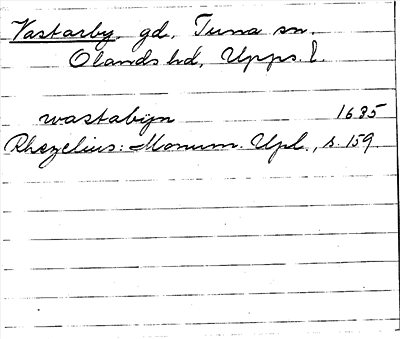 Vastarby, gd, Tuna sn.
Olands hd, Upps. l.
wastabijn 1685
Rhezelius: Monum. Upl., s. 159